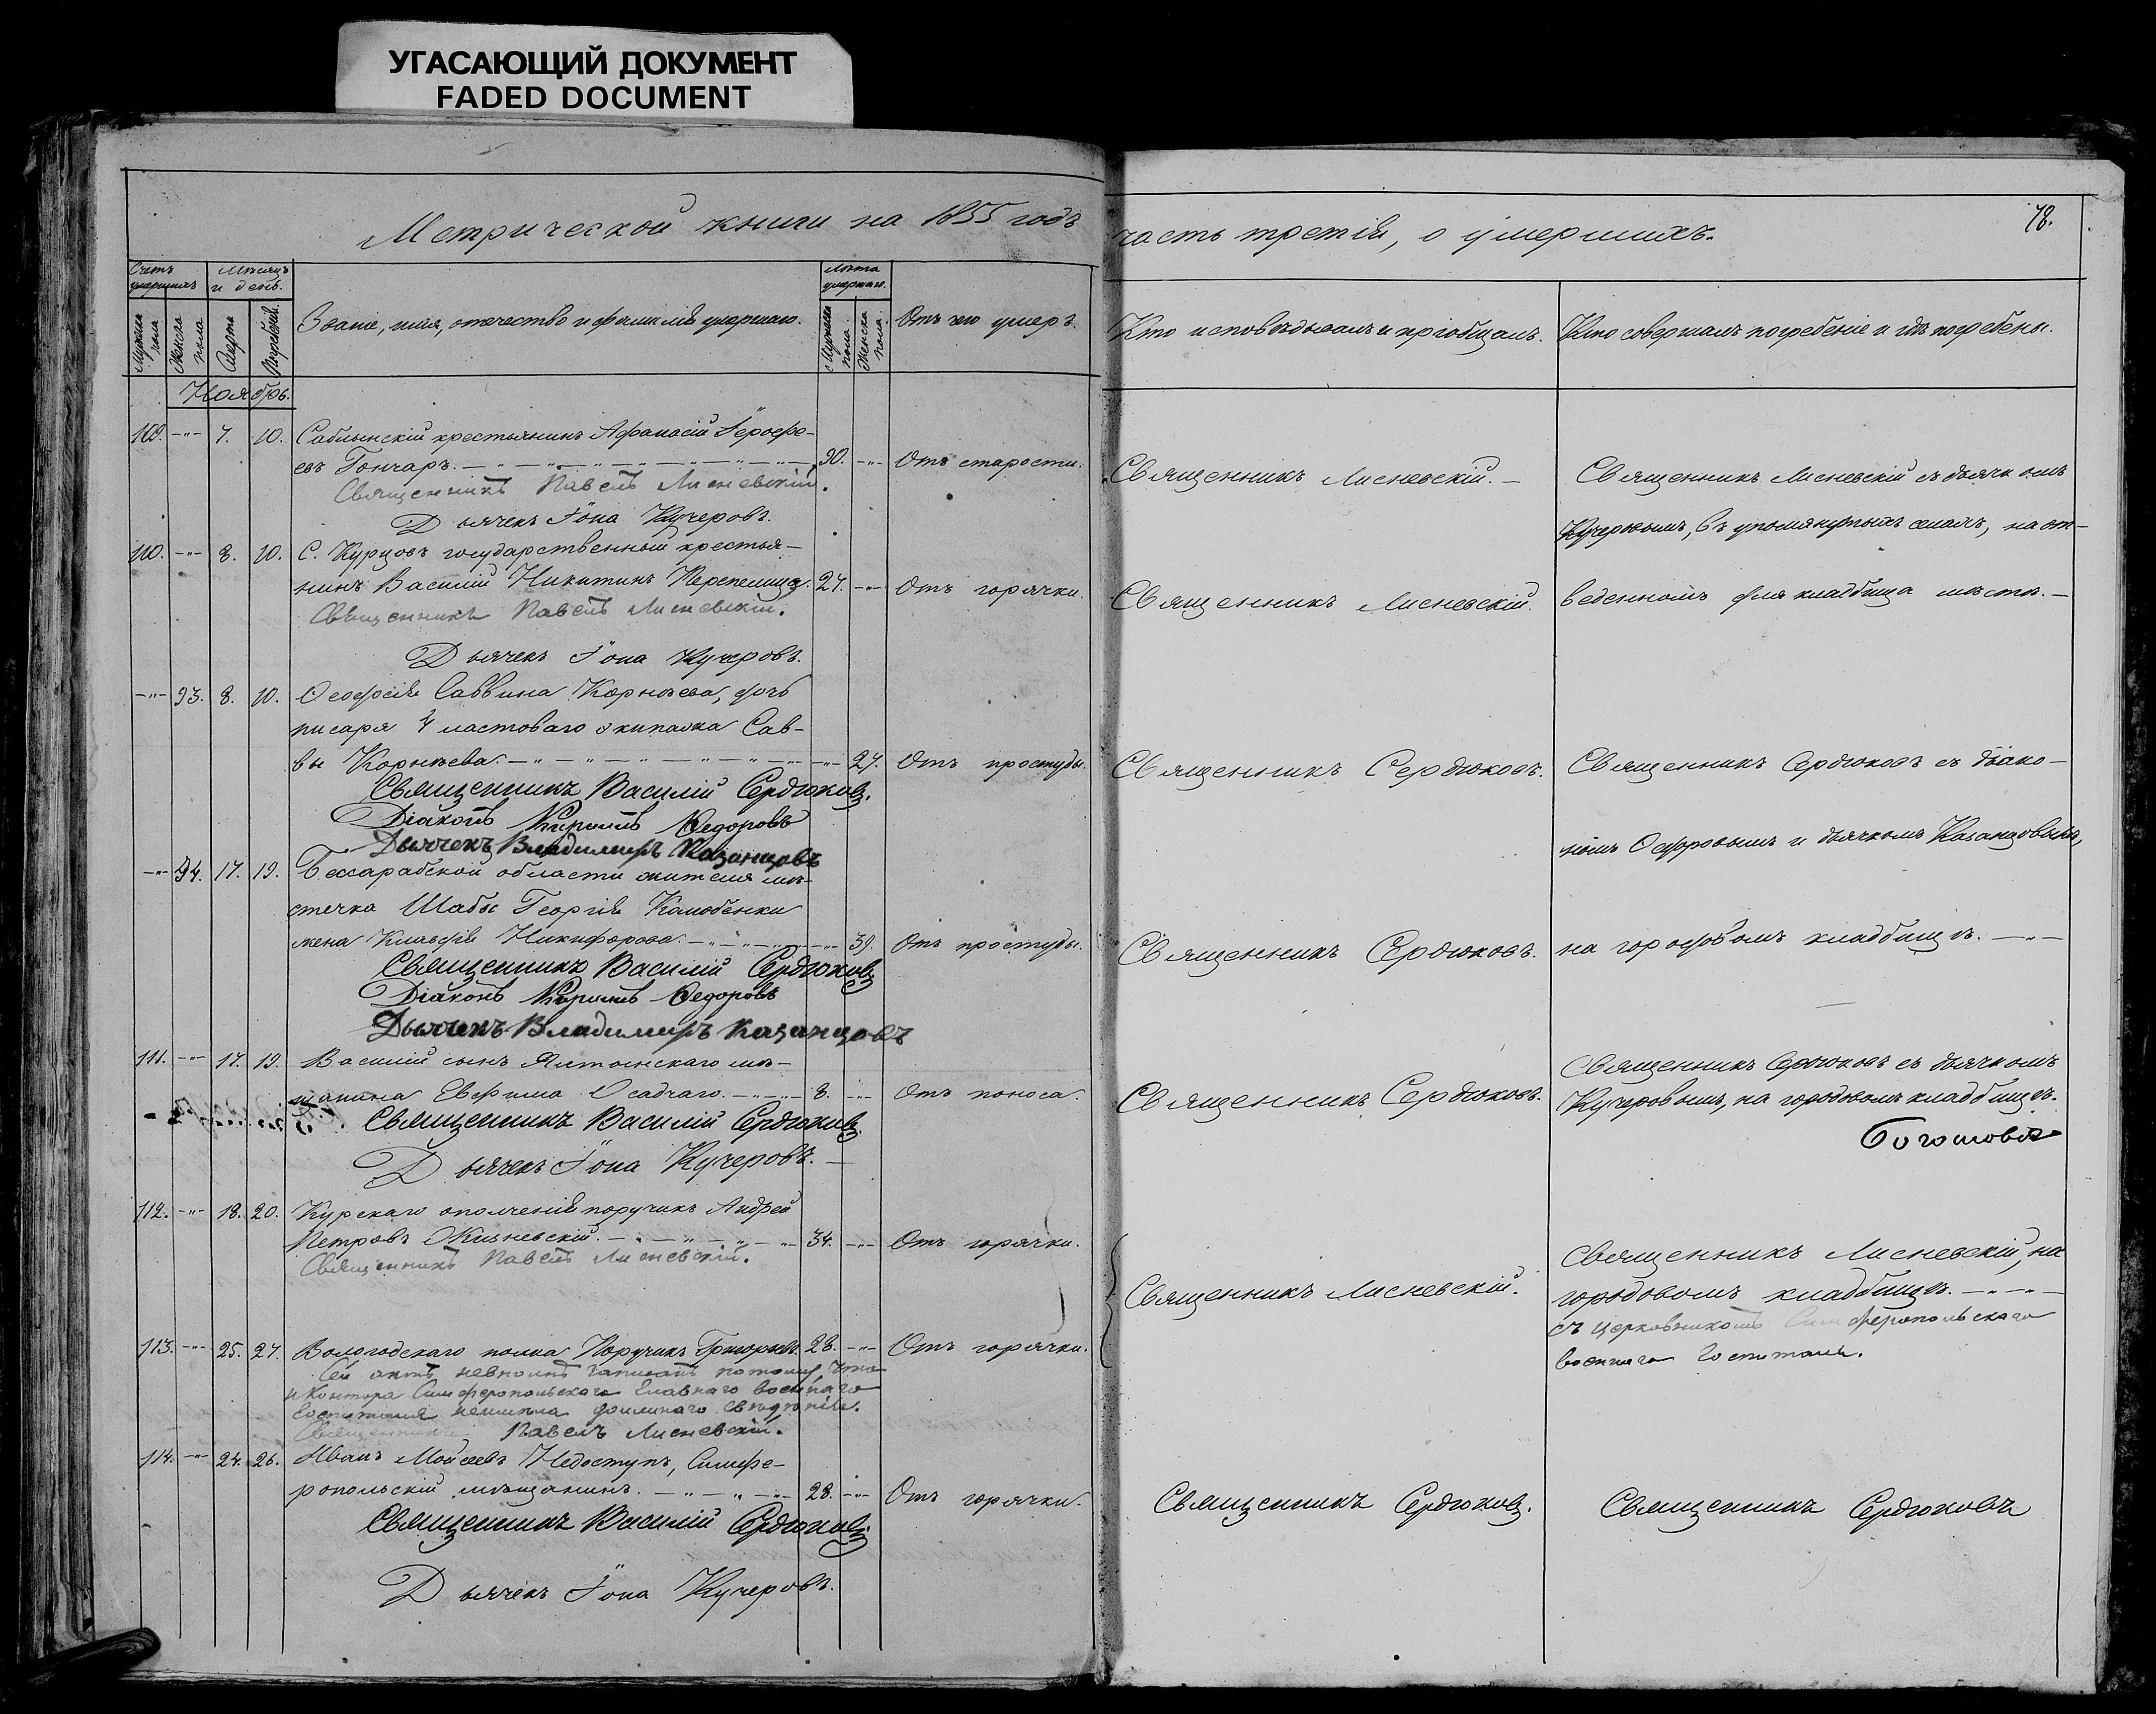 УГАСАЮЩИЙ ДОКУМЕНТ
FADED DOCUMENT
Метрической книги на 1855 годъ
часть третія, о умершихъ.
78.
Счетъ умершихъ
Мѣсяцъ и день.
Званіе, имя, отечество и фамилія умершаго.
Лѣта умершаго.
Отъ чего умеръ.
Кто исповѣдывалъ и пріобщалъ.
Кто совершалъ погребеніе и гдѣ погребены.
Мужска пола
Женска пола
Смерти
Погребенія.
Мужска пола.
Женска пола.
Ноябрь.
109. -"- 7. 10. Саблынскій крестьянинъ Афанасій Іерофе-
евъ Гончаръ. 90. -"- Отъ старости.
Священникъ Павелъ Лисневскій.
Дьячекъ Іона Кучеровъ.
Священникъ Лисневскій.
Священникъ Лисневскій съ дьячкомъ
Кучеровымъ, въ упомянутыхъ селахъ, на от-
веденномъ для кладбища мѣстѣ.
110. -"- 8. 10. С. Курцовъ государственный крестья-
нинъ Василій Никитинъ Перепелица. 27. -"- Отъ горячки.
Священникъ Павелъ Лисневскій.
Дьячекъ Іона Кучеровъ.
Священникъ Лисневскій.
-"- 93. 8. 10. Ѳеодосія Саввина Корнѣева, дочь
писаря 4 ластоваго экипажа Сав-
вы Корнѣева. -"- 27. Отъ простуды.
Священникъ Василій Сердюковъ.
Діаконъ Кирилъ Ѳедоровъ
Дьячекъ Владимиръ Казанцовъ
Священникъ Сердюковъ.
Священникъ Сердюковъ съ діако-
номъ Ѳедоровымъ и дьячкомъ Казанцовымъ,
на городовомъ кладбищѣ.
-"- 94. 17. 19. Бессарабской области жителя мѣ-
стечка Шабы Георгія Калюбенки
жена Клавдія Никифорова. -"- 39. Отъ простуды.
Священникъ Василій Сердюковъ
Діаконъ Кирилъ Ѳедоровъ
Дьячекъ Владимиръ Казанцовъ
Священникъ Сердюковъ.
111. -"- 17. 19. Василій сынъ Ялтинскаго мѣ-
щанина Евфима Осадчаго. 8. -"- Отъ поноса.
Священникъ Василій Сердюковъ.
Дьячекъ Іона Кучеровъ.
Священникъ Сердюковъ.
Священникъ Сердюковъ съ дьячкомъ
Кучеровымъ, на городовомъ кладбищѣ.
112. -"- 18. 20. Курскаго ополченія поручикъ Андрей
Петровъ Жизневскій. 34. -"- Отъ горячки.
Священникъ Павелъ Лисневскій.
Священникъ Лисневскій.
Священникъ Лисневскій, на
городовомъ кладбищѣ.
съ церковникомъ Симферопольскаго
военнаго Госпиталя.
113. -"- 25. 27. Вологодскаго полка Поручикъ Григорьевъ. 28. -"- Отъ горячки.
Сей актъ невполнѣ записанъ потому, что
и Контора Симферопольскаго Главнаго военнаго
Госпиталя неимѣла должнаго свѣдѣнія.
Священникъ Павелъ Лисневскій.
114. -"- 24. 26. Иванъ Мойсеевъ Недоступъ, Симфе-
ропольскій мѣщанинъ. 28. -"- Отъ горячки.
Священникъ Василій Сердюковъ.
Дьячекъ Іона Кучеровъ.
Священникъ Сердюковъ.
Священникъ Сердюковъ